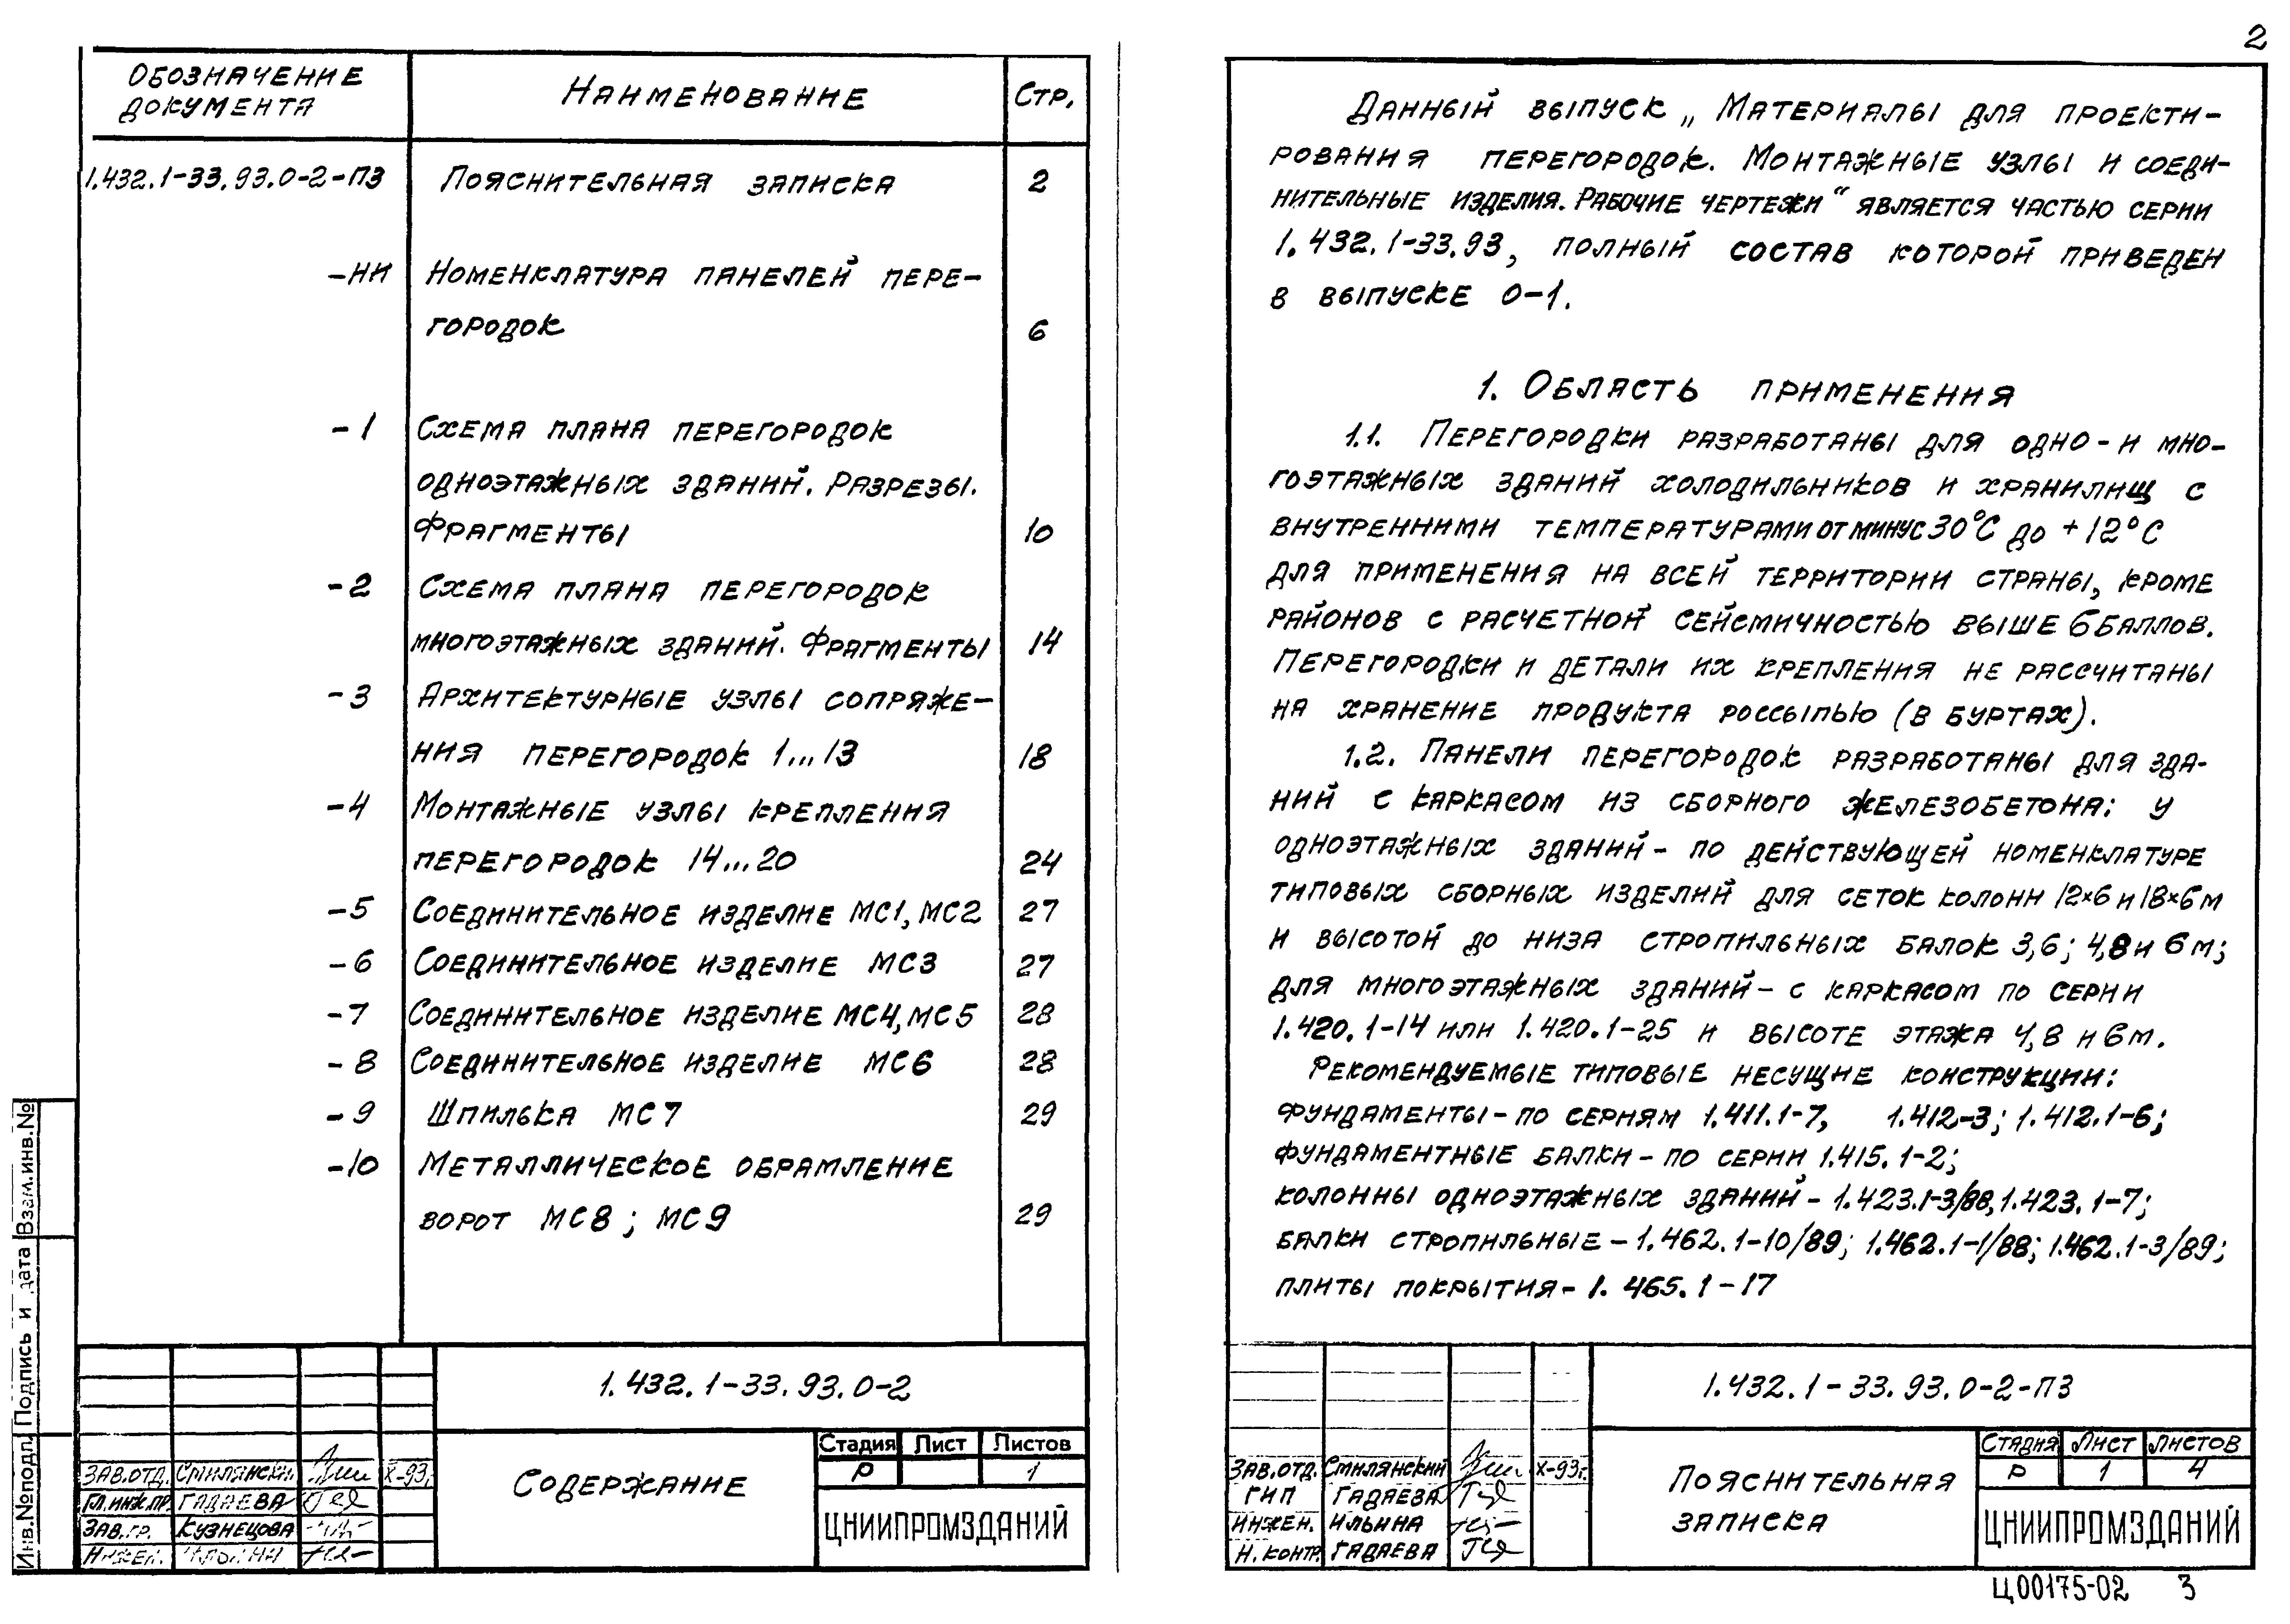 2
Обозначение документа Наименование Стр.
1.432.1-33.93.0-2-ПЗ Пояснительная записка 2
-НИ Номенклатура панелей пере-
городок 6
-1 Схема плана перегородок
одноэтажных зданий. Разрезы.
Фрагменты 10
-2 Схема плана перегородок
многоэтажных зданий. Фрагменты 14
-3 Архитектурные узлы сопряже-
ния перегородок 1...13 18
-4 Монтажные узлы крепления
перегородок 14...20 24
-5 Соединительное изделие МС1, МС2 27
-6 Соединительное изделие МС3 27
-7 Соединительное изделие МС4, МС5 28
-8 Соединительное изделие МС6 28
-9 Шпилька МС7 29
-10 Металлическое обрамление
ворот МС8; МС9 29
Инв.№подл. Подпись и дата Взам.инв.№
1.432.1-33.93.0-2
Стадия Лист Листов
Зав.отд. Смилянский X-93г. Р 1
Содержание
Гл.инж.пр. Гадаева
Зав.гр. Кузнецова ЦНИИПРОМЗДАНИЙ
Инжен. Ильина
Данный выпуск „Материалы для проекти-
рования перегородок. Монтажные узлы и соеди-
нительные изделия. Рабочие чертежи“ является частью серии
1.432.1-33.93, полный состав которой приведен
в выпуске 0-1.
1. Область применения
1.1. Перегородки разработаны для одно- и мно-
гоэтажных зданий холодильников и хранилищ с
внутренними температурами от минус 30°С до +12°С
для применения на всей территории страны, кроме
районов с расчетной сейсмичностью выше 6 баллов.
Перегородки и детали их крепления не рассчитаны
на хранение продукта россыпью (в буртах).
1.2. Панели перегородок разработаны для зда-
ний с каркасом из сборного железобетона: у
одноэтажных зданий - по действующей номенклатуре
типовых сборных изделий для сеток колонн 12×6 и 18×6 м
и высотой до низа стропильных балок 3,6; 4,8 и 6 м;
для многоэтажных зданий - с каркасом по серии
1.420.1-14 или 1.420.1-25 и высоте этажа 4,8 и 6 м.
Рекомендуемые типовые несущие конструкции:
фундаменты - по сериям 1.411.1-7, 1.412-3; 1.412.1-6;
фундаментные балки - по серии 1.415.1-2;
колонны одноэтажных зданий - 1.423.1-3/88, 1.423.1-7;
балки стропильные - 1.462.1-10/89; 1.462.1-1/88; 1.462.1-3/89;
плиты покрытия - 1.465.1-17
1.432.1-33.93.0-2-ПЗ
Стадия Лист Листов
Зав.отд. Смилянский X-93г. Р 1 4
Пояснительная
записка
ГИП Гадаева
Инжен. Ильина ЦНИИПРОМЗДАНИЙ
Н.контр. Гадаева
Ц00175-02 3